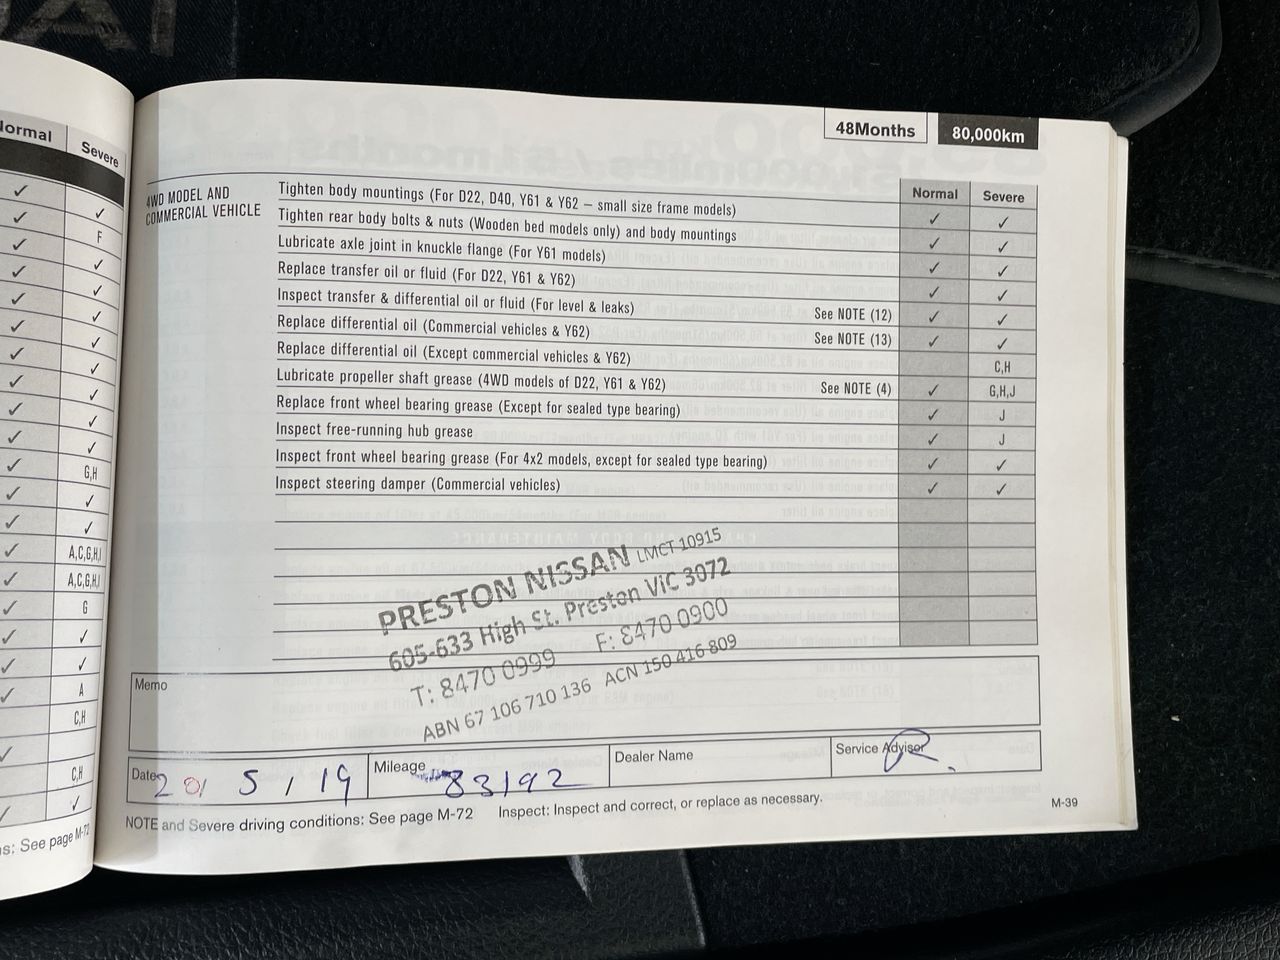 Normal Severe
✓ ✓
✓ F
✓ ✓
✓ ✓
✓ ✓
✓ ✓
✓ ✓
✓ ✓
✓ ✓
✓ ✓
✓ G,H
✓ ✓
✓ ✓
✓ A,C,G,H,I
✓ A,C,G,H,I
✓ G
✓ ✓
✓ ✓
✓ A
C,H
✓
C,H
✓ ✓
See page M-72
48Months 80,000km
Normal Severe
4WD MODEL AND
COMMERCIAL VEHICLE
Tighten body mountings (For D22, D40, Y61 & Y62 – small size frame models) ✓ ✓
Tighten rear body bolts & nuts (Wooden bed models only) and body mountings ✓ ✓
Lubricate axle joint in knuckle flange (For Y61 models) ✓ ✓
Replace transfer oil or fluid (For D22, Y61 & Y62) ✓ ✓
Inspect transfer & differential oil or fluid (For level & leaks) See NOTE (12) ✓ ✓
Replace differential oil (Commercial vehicles & Y62) See NOTE (13) ✓ ✓
Replace differential oil (Except commercial vehicles & Y62) C,H
Lubricate propeller shaft grease (4WD models of D22, Y61 & Y62) See NOTE (4) ✓ G,H,J
Replace front wheel bearing grease (Except for sealed type bearing) ✓ J
Inspect free-running hub grease ✓ J
Inspect front wheel bearing grease (For 4x2 models, except for sealed type bearing) ✓ ✓
Inspect steering damper (Commercial vehicles) ✓ ✓
PRESTON NISSAN LMCT 10915
605-633 High St. Preston ViC 3072
T: 8470 0999 F: 8470 0900
ABN 67 106 710 136 ACN 150 416 809
Memo
Date 20/ 5 / 19 Mileage 83192 Dealer Name Service Advisor
NOTE and Severe driving conditions: See page M-72 Inspect: Inspect and correct, or replace as necessary. M-39